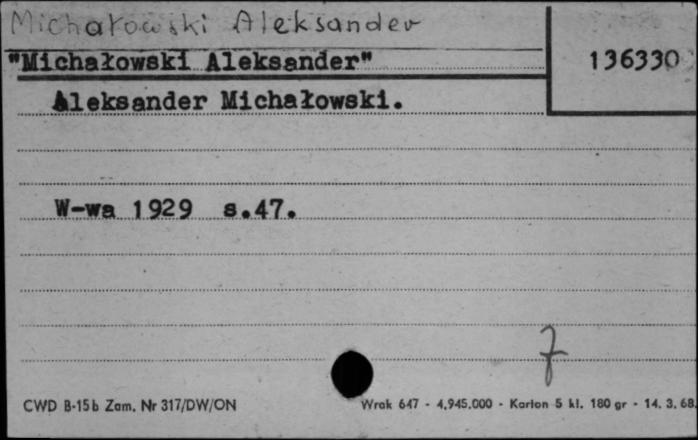 Michałowski Aleksander
"Michałowski Aleksander"
136330
Aleksander Michałowski.
W-wa 1929 s.47.
7
CWD B-15b Zam. Nr 317/DW/ON
Wrak 647 - 4.945.000 - Karton 5 kl. 180 gr - 14. 3. 68.